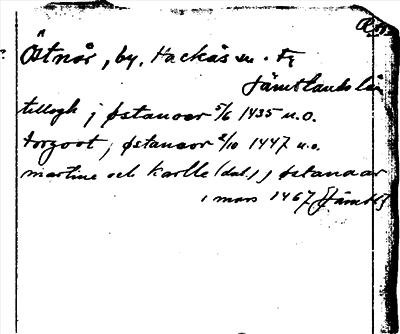 Östnår, by, Hackås sn. Fz
Jämtlands län
tillogh j østanoor 5/6 1435 u.o.
torgoot, j østanoor 2/10 1447 u.o.
martine och karlle (dat.) j østanaar
1 mars 1467